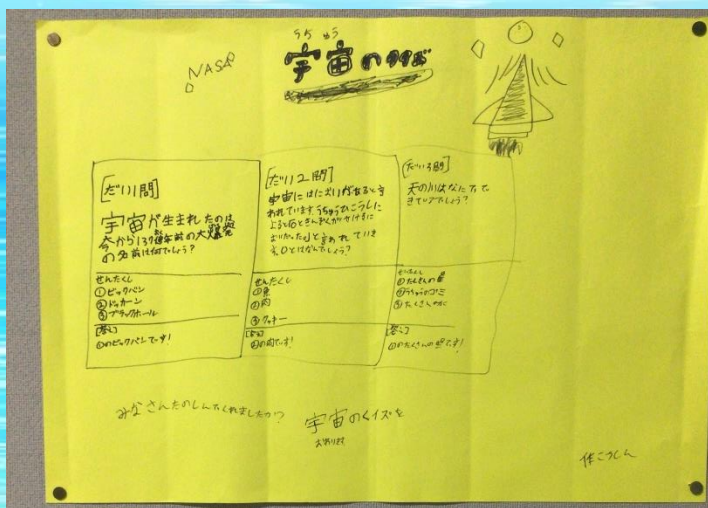 NASA
うちゅう
宇宙のクイズ
[だい1問]
宇宙が生まれたのは
今から137億年前の大爆発
の名前は何でしょう?
せんたくし
①ビックバン
②ドッカーン
③ブラックホール
[答え]
①のビックバンです!
[だい2問]
宇宙にはにおいがあると言
われています。うちゅうひこうしに
よると
と言われていま
す。〇とはなんでしょう?
せんたくし
①魚
②肉
③クッキー
[答え]
②の肉です!
[だい3問]
天の川はなにでで
きているでしょう?
せんたくし
①たくさんの星
②うちゅうのゴミ
③たくさんの
[答え]
①のたくさんの星です!
みなさんたのしんでくれましたか?
宇宙のクイズを
おわります
作こうしん